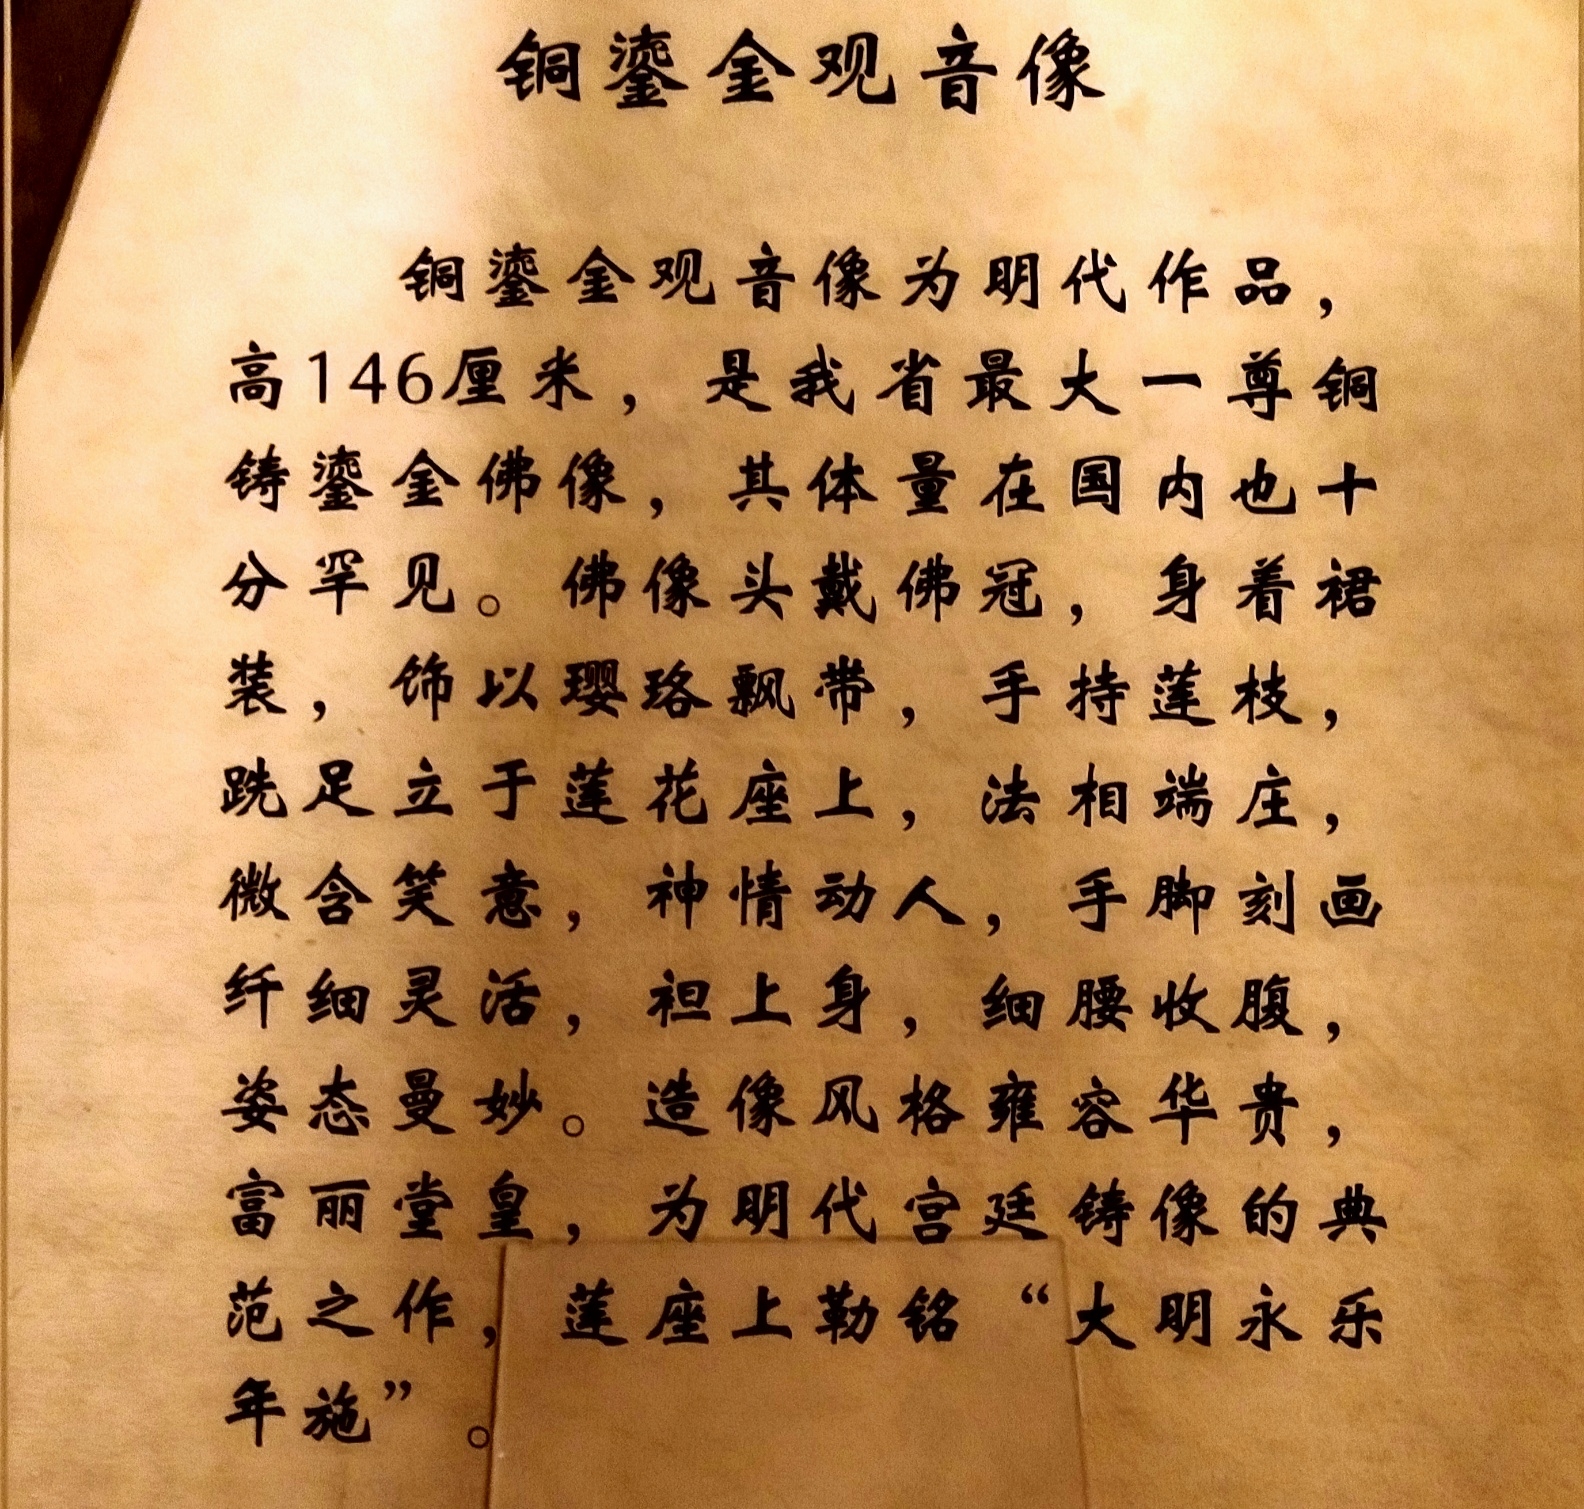 铜鎏金观音像
铜鎏金观音像为明代作品，
高146厘米，是我省最大一尊铜
铸鎏金佛像，其体量在国内也十
分罕见。佛像头戴佛冠，身着裙
装，饰以璎珞飘带，手持莲枝，
跣足立于莲花座上，法相端庄，
微含笑意，神情动人，手脚刻画
纤细灵活，袒上身，细腰收腹，
姿态曼妙。造像风格雍容华贵，
富丽堂皇，为明代宫廷铸像的典
范之作，莲座上勒铭“大明永乐
年施”。